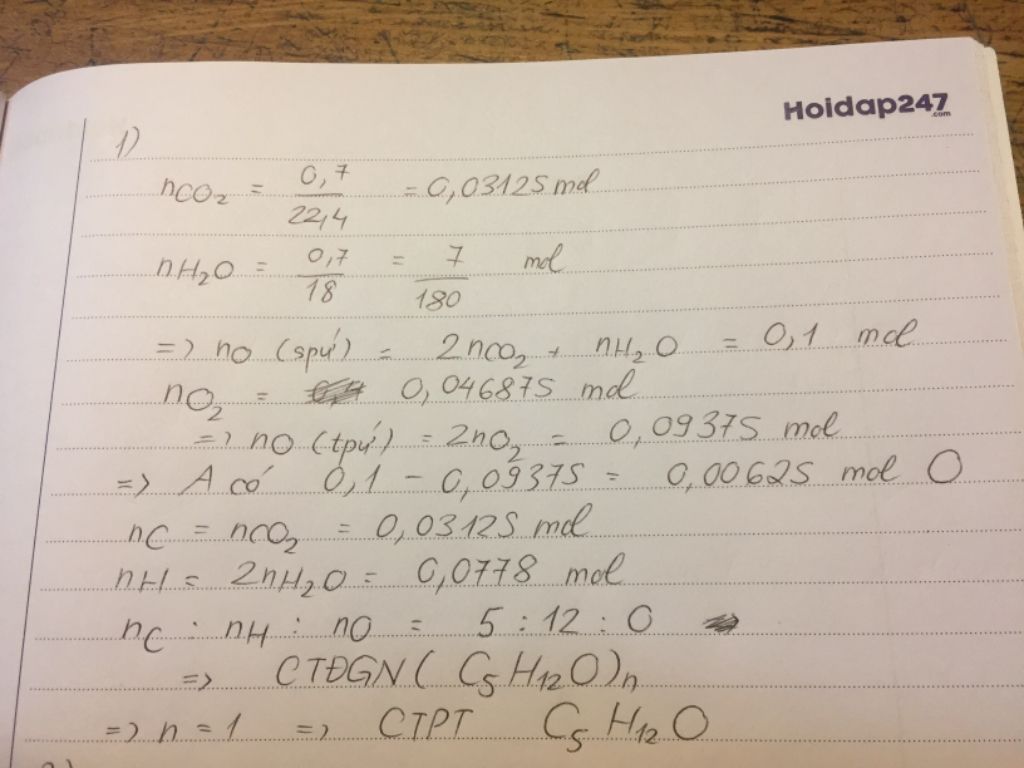 Hoidap247
.com
1)
nCO2 = 0,7/22,4 = 0,03125 mol
nH2O = 0,7/18 = 7/180 mol
=> nO (spứ) = 2nCO2 + nH2O = 0,1 mol
nO2 = 0,046875 mol
=> nO (tpứ) = 2nO2 = 0,09375 mol
=> A có 0,1 - 0,09375 = 0,00625 mol O
nC = nCO2 = 0,03125 mol
nH = 2nH2O = 0,0778 mol
nC : nH : nO = 5 : 12 : 0
=> CTĐGN (C5H12O)n
=> n = 1 => CTPT C5H12O